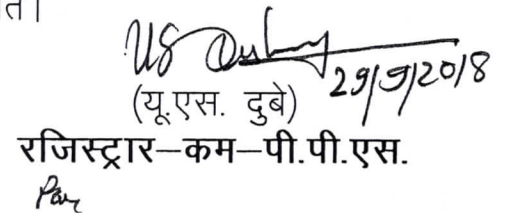 ता।
US Dubey 29/9/2018
(यू.एस. दुबे)
रजिस्ट्रार–कम–पी.पी.एस.